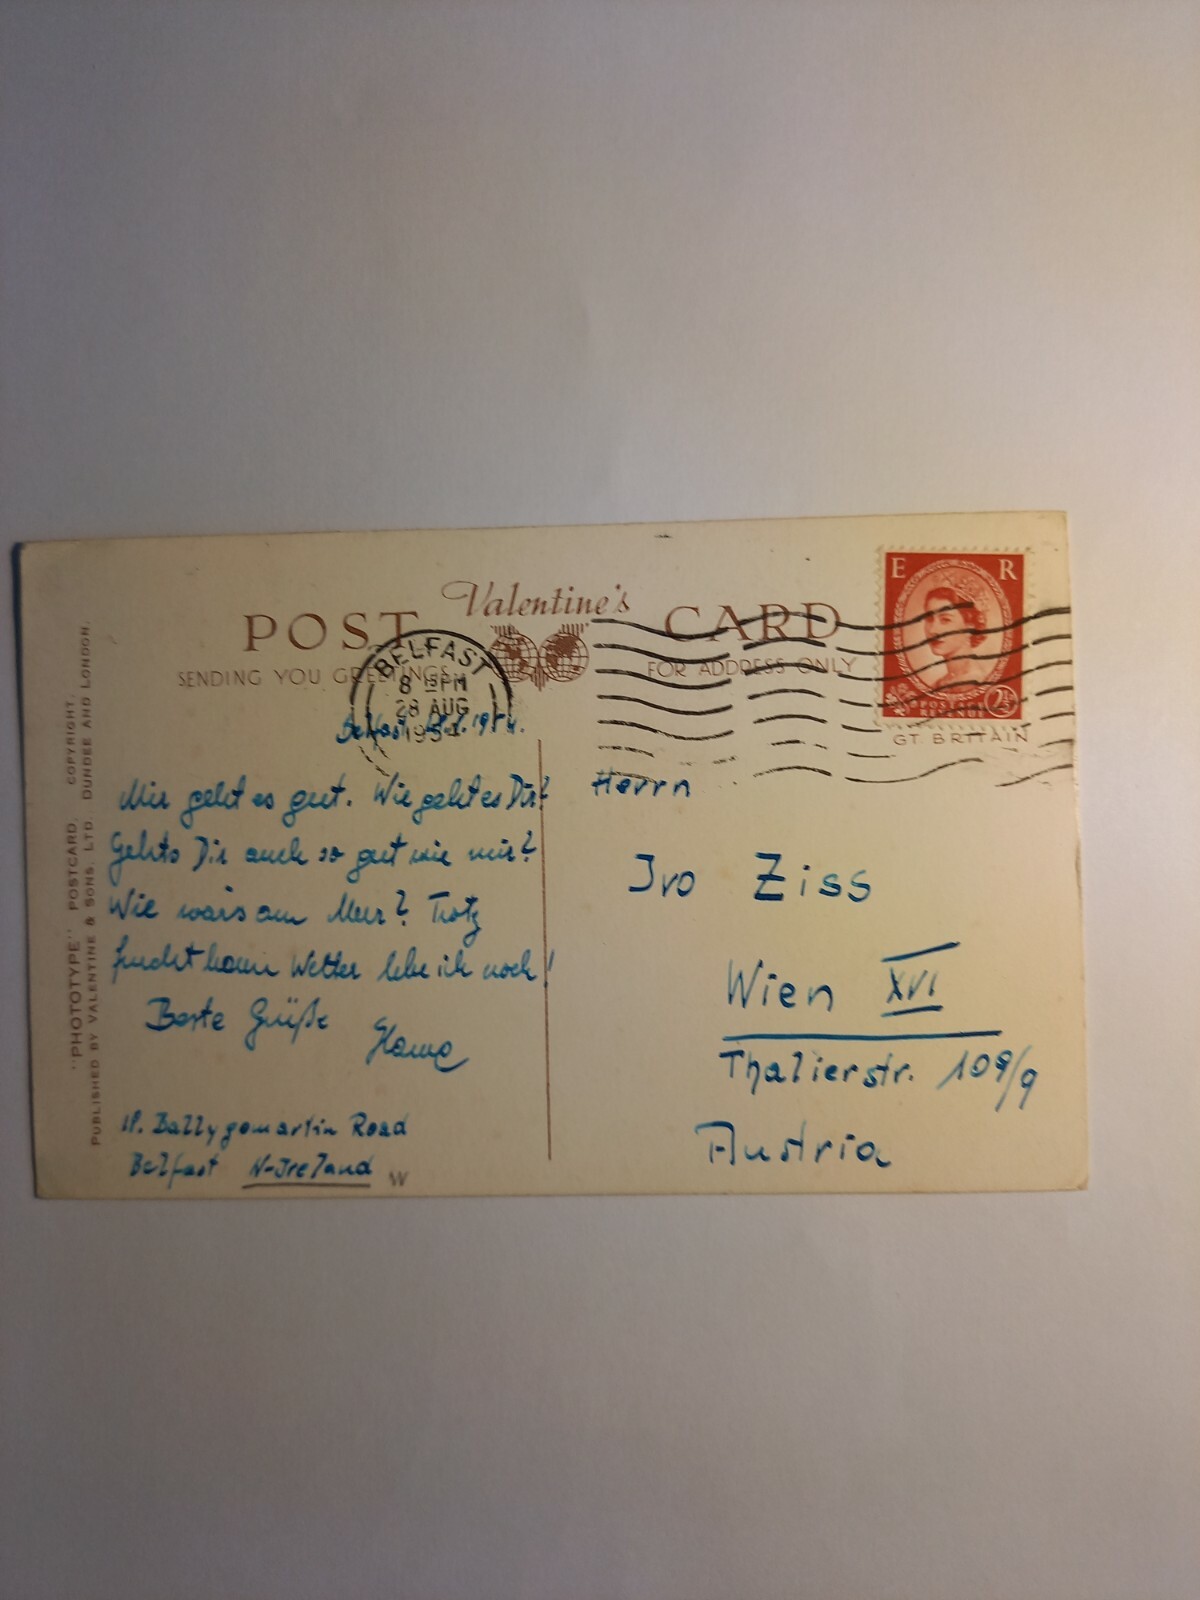 Valentine's
POST CARD
SENDING YOU GREETINGS
FOR ADDRESS ONLY
BELFAST
8 PM
28 AUG
195
E R
POSTAGE
REVENUE
2½D
GT BRITAIN
Belfast, 1954.
Mir geht es gut. Wie geht es Dir?
Gehts Dir auch so gut wie mir?
Wie wars am Meer? Trotz
Wetter lebe ich noch!
Beste Grüße
Ballygomartin Road
Belfast N-Ireland
W
Herrn
Ivo Ziss
Wien XVI
Thalierstr. 109/9
Austria
"PHOTOTYPE" POSTCARD. COPYRIGHT.
PUBLISHED BY VALENTINE & SONS, LTD., DUNDEE AND LONDON.